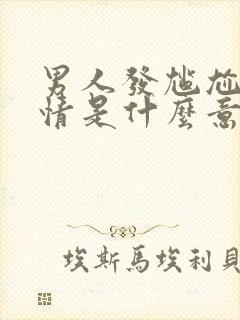 男人發尷尬
情是什麼意
埃斯馬埃利貝